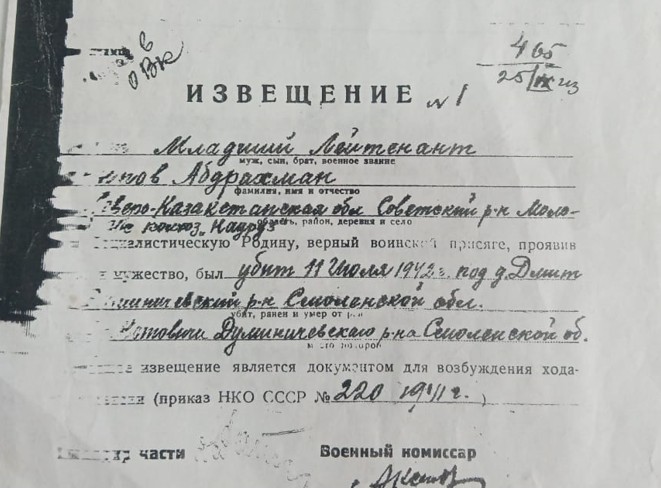 в
ОВК
465
25/IX из
ИЗВЕЩЕНИЕ №1
Младший Лейтенант
муж, сын, брат, военное звание
Абдрахман
фамилия, имя и отчество
веро-Казахстанская обл Советский р-н Моло-
область, район, деревня и село
колхоз "Науруз"
социалистическую Родину, верный воинской присяге, проявив
и мужество, был убит 11 Июля 1942 г. под д. Дмит
миничевский р-н Смоленской обл.
убит, ранен и умер от ран
Думиничевского р-на Смоленской об.
место похорон
извещение является документом для возбуждения хода-
(приказ НКО СССР № 220 1941 г.)
части Военный комиссар